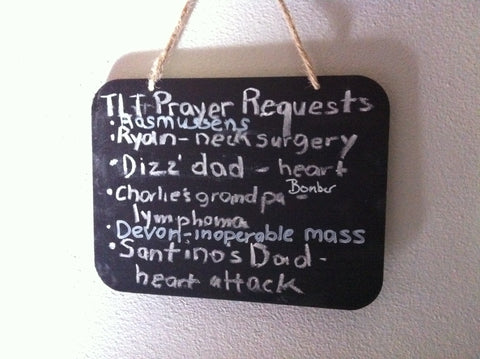 TLT Prayer Requests
• Rasmussens
• Ryan - neck surgery
• Dizz' dad - heart
• Charlie's grandpa - Bomber
lymphoma
• Devon - inoperable mass
• Santinos Dad -
heart attack